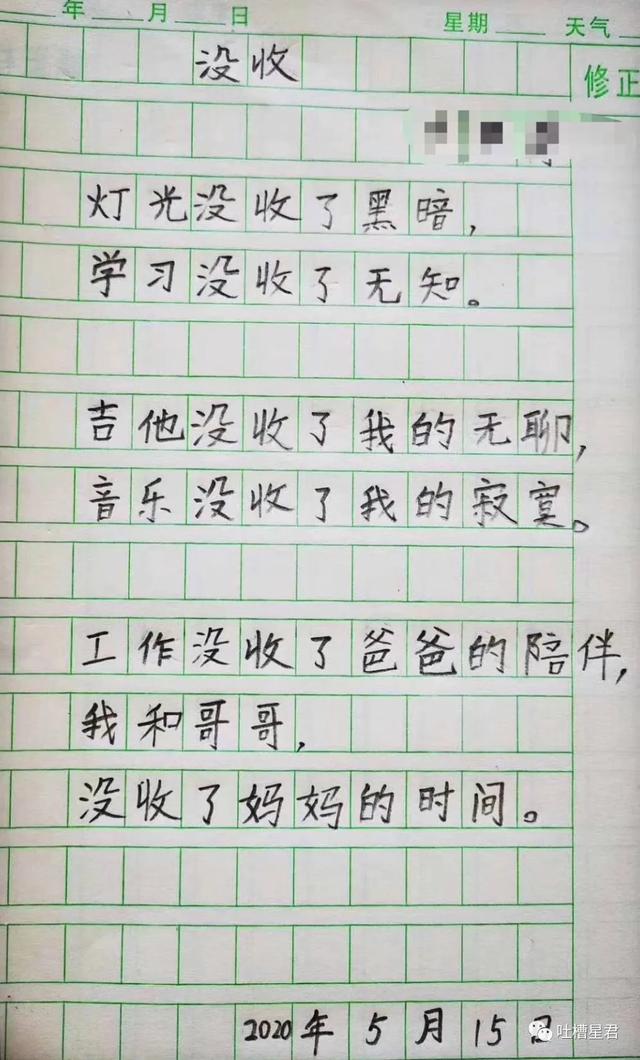 年 月 日 星期 天气
没收
修正
灯光没收了黑暗，
学习没收了无知。
吉他没收了我的无聊，
音乐没收了我的寂寞。
工作没收了爸爸的陪伴，
我和哥哥，
没收了妈妈的时间。
2020年5月15日
吐槽星君